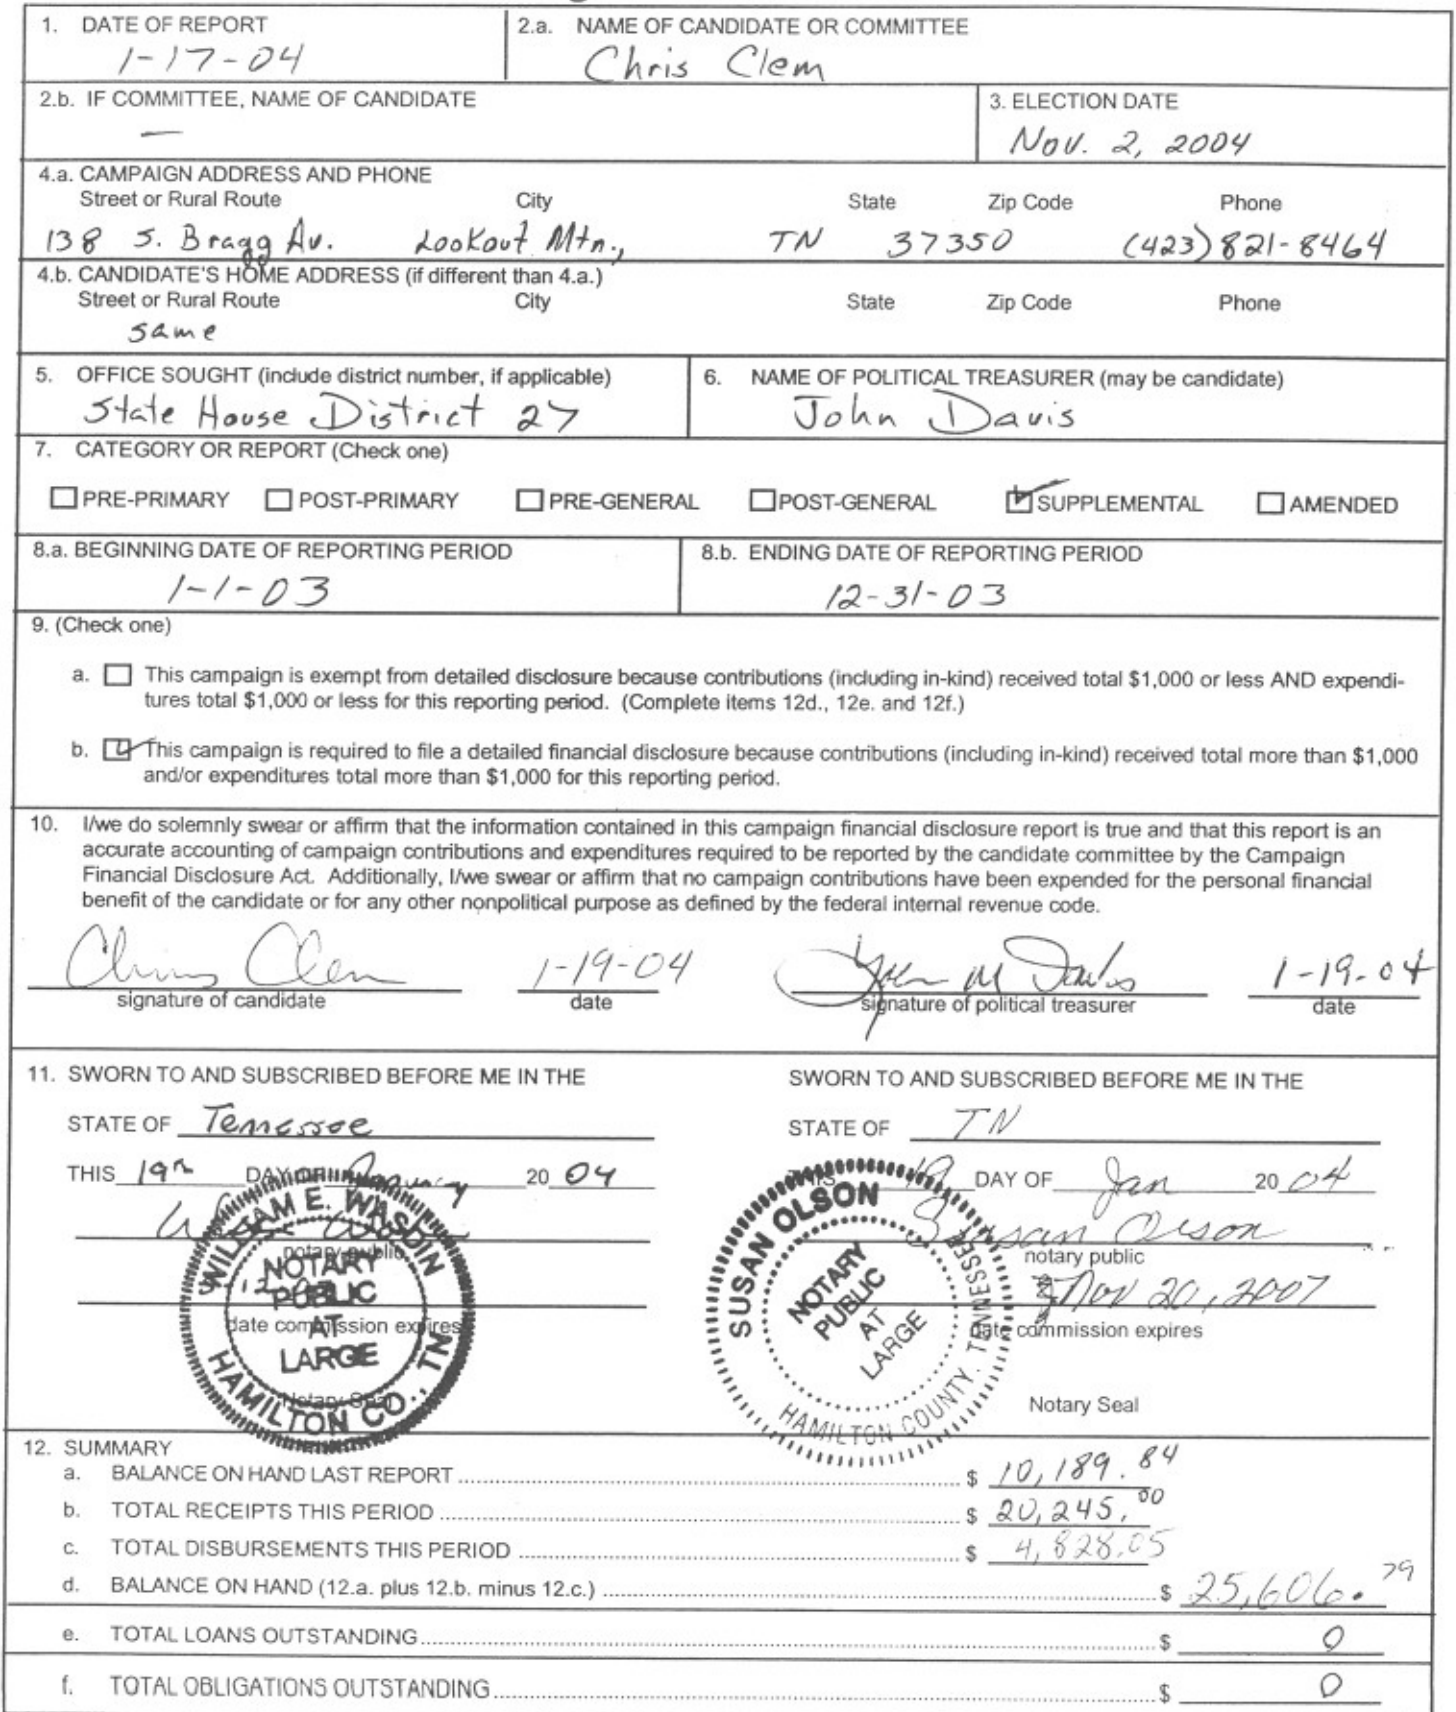 1. DATE OF REPORT
1-17-04
2.a. NAME OF CANDIDATE OR COMMITTEE
Chris Clem
2.b. IF COMMITTEE, NAME OF CANDIDATE
—
3. ELECTION DATE
Nov. 2, 2004
4.a. CAMPAIGN ADDRESS AND PHONE
Street or Rural Route City State Zip Code Phone
138 S. Bragg Av. Lookout Mtn., TN 37350 (423) 821-8464
4.b. CANDIDATE'S HOME ADDRESS (if different than 4.a.)
Street or Rural Route City State Zip Code Phone
same
5. OFFICE SOUGHT (include district number, if applicable)
State House District 27
6. NAME OF POLITICAL TREASURER (may be candidate)
John Davis
7. CATEGORY OR REPORT (Check one)
PRE-PRIMARY POST-PRIMARY PRE-GENERAL POST-GENERAL SUPPLEMENTAL AMENDED
8.a. BEGINNING DATE OF REPORTING PERIOD
1-1-03
8.b. ENDING DATE OF REPORTING PERIOD
12-31-03
9. (Check one)
a. This campaign is exempt from detailed disclosure because contributions (including in-kind) received total $1,000 or less AND expendi-
tures total $1,000 or less for this reporting period. (Complete items 12d., 12e. and 12f.)
b. This campaign is required to file a detailed financial disclosure because contributions (including in-kind) received total more than $1,000
and/or expenditures total more than $1,000 for this reporting period.
10. I/we do solemnly swear or affirm that the information contained in this campaign financial disclosure report is true and that this report is an
accurate accounting of campaign contributions and expenditures required to be reported by the candidate committee by the Campaign
Financial Disclosure Act. Additionally, I/we swear or affirm that no campaign contributions have been expended for the personal financial
benefit of the candidate or for any other nonpolitical purpose as defined by the federal internal revenue code.
Chris Clem 1-19-04 John M Davis 1-19-04
signature of candidate date signature of political treasurer date
11. SWORN TO AND SUBSCRIBED BEFORE ME IN THE
STATE OF Tennessee
THIS 19th DAY OF January 20 04
notary public
date commission expires
Notary Seal
WILLIAM E. WASDIN
NOTARY
PUBLIC
AT
LARGE
HAMILTON CO., TN
SWORN TO AND SUBSCRIBED BEFORE ME IN THE
STATE OF TN
THIS 19 DAY OF Jan 20 04
Susan Olson
notary public
Nov 20, 2007
date commission expires
Notary Seal
SUSAN OLSON
NOTARY
PUBLIC
AT
LARGE
HAMILTON COUNTY, TENNESSEE
12. SUMMARY
a. BALANCE ON HAND LAST REPORT $ 10,189.84
b. TOTAL RECEIPTS THIS PERIOD $ 20,245.00
c. TOTAL DISBURSEMENTS THIS PERIOD $ 4,828.05
d. BALANCE ON HAND (12.a. plus 12.b. minus 12.c.) $ 25,606.79
e. TOTAL LOANS OUTSTANDING $ 0
f. TOTAL OBLIGATIONS OUTSTANDING $ 0